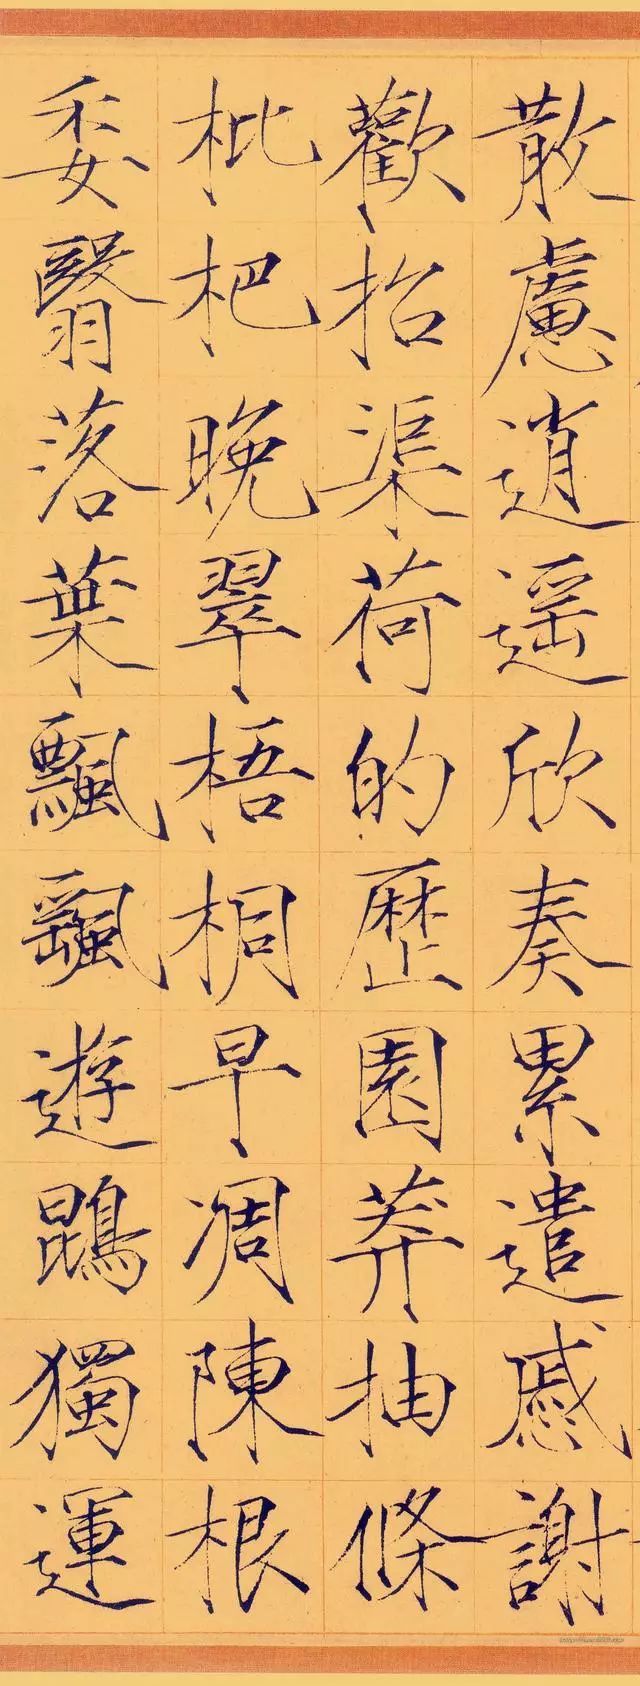 散慮逍遙欣奏累遣慼謝
歡招渠荷的歷園莽抽條
枇杷晚翠梧桐早凋陳根
委翳落葉飄颻遊鵾獨運